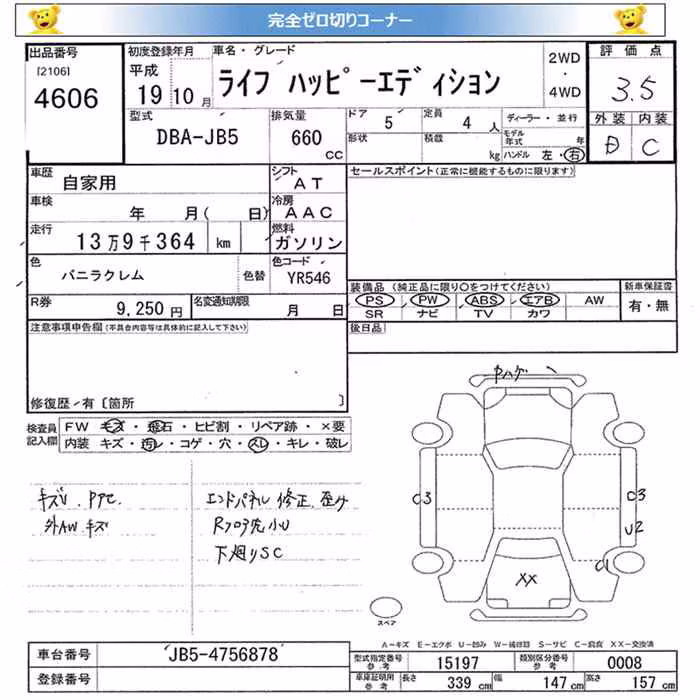 完全ゼロ切りコーナー
出品番号
[2106]
4606
初度登録年月
平成
19 10 月
車名・グレード
ライフ ハッピーエディション
2WD
・
4WD
評価点
3.5
型式
DBA-JB5
排気量
660
CC
ドア
5
定員
4 人
形状
積載
kg
ディーラー・並行
モデル年式
年
ハンドル 左・右
外装 内装
D C
車歴
自家用
シフト
AT
セールスポイント(正常に機能するものに限ります)
車検
年 月( 日)
冷房
AAC
走行
13万9千364 km
燃料
ガソリン
色
バニラクレム
色替
色コード
YR546
装備品 (純正品に限り○をつけてください)
PS PW ABS エアB AW
SR ナビ TV カワ
新車保証書
有・無
R券
9,250 円
名変通知期限
月 日
後日品
注意事項申告欄(不具合内容等は具体的に記入して下さい)
修復歴・有〔箇所 〕
検査員
記入欄
FW キズ・飛石・ヒビ割・リペア跡・×要
内装 キズ・汚レ・コゲ・穴・スレ・キレ・破レ
キズU.Pアセ.
外AW キズ
エンドパネル 修正.歪み
Rフロア先小U
下廻りSC
中ハゲ
C3
C3
U2
C1
XX
スペア
A-キズ E-エクボ U-凹み W-補修跡 S-サビ C-腐食 XX-交換済
車台番号
JB5-4756878
登録番号
型式指定番号
参考
15197
類別区分番号
参考
0008
車庫証明用
参考
長さ 339 cm
幅 147 cm
高さ 157 cm